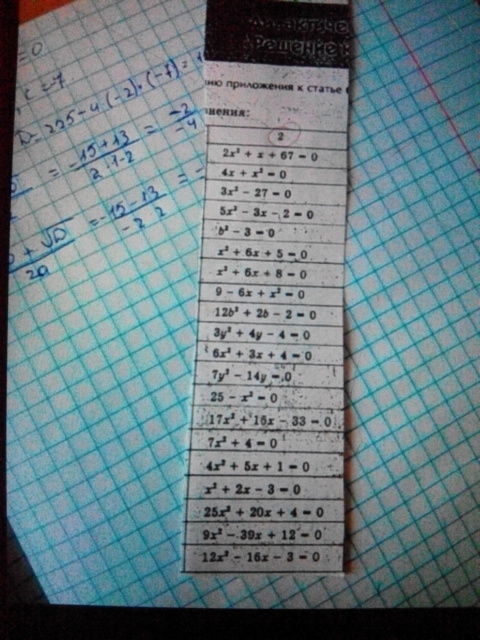 =0
c = -7
D = 225 - 4·(-2)·(-7) =
= -15 + 13 = -2
-4
= -15 - 13 =
-2
+ √D
2a
Решение
нию приложения к статье
нения:
2
2x² + x + 67 = 0
4x + x² = 0
3x² - 27 = 0
5x² - 3x - 2 = 0
b² - 3 = 0
x² + 6x + 5 = 0
x² + 6x + 8 = 0
9 - 6x + x² = 0
12b² + 2b - 2 = 0
3y² + 4y - 4 = 0
6x² + 3x + 4 = 0
7y² - 14y = 0
25 - x² = 0
17x² + 16x - 33 = 0
7x² + 4 = 0
4x² + 5x + 1 = 0
x² + 2x - 3 = 0
25x² + 20x + 4 = 0
9x² - 39x + 12 = 0
12x² - 16x - 3 = 0